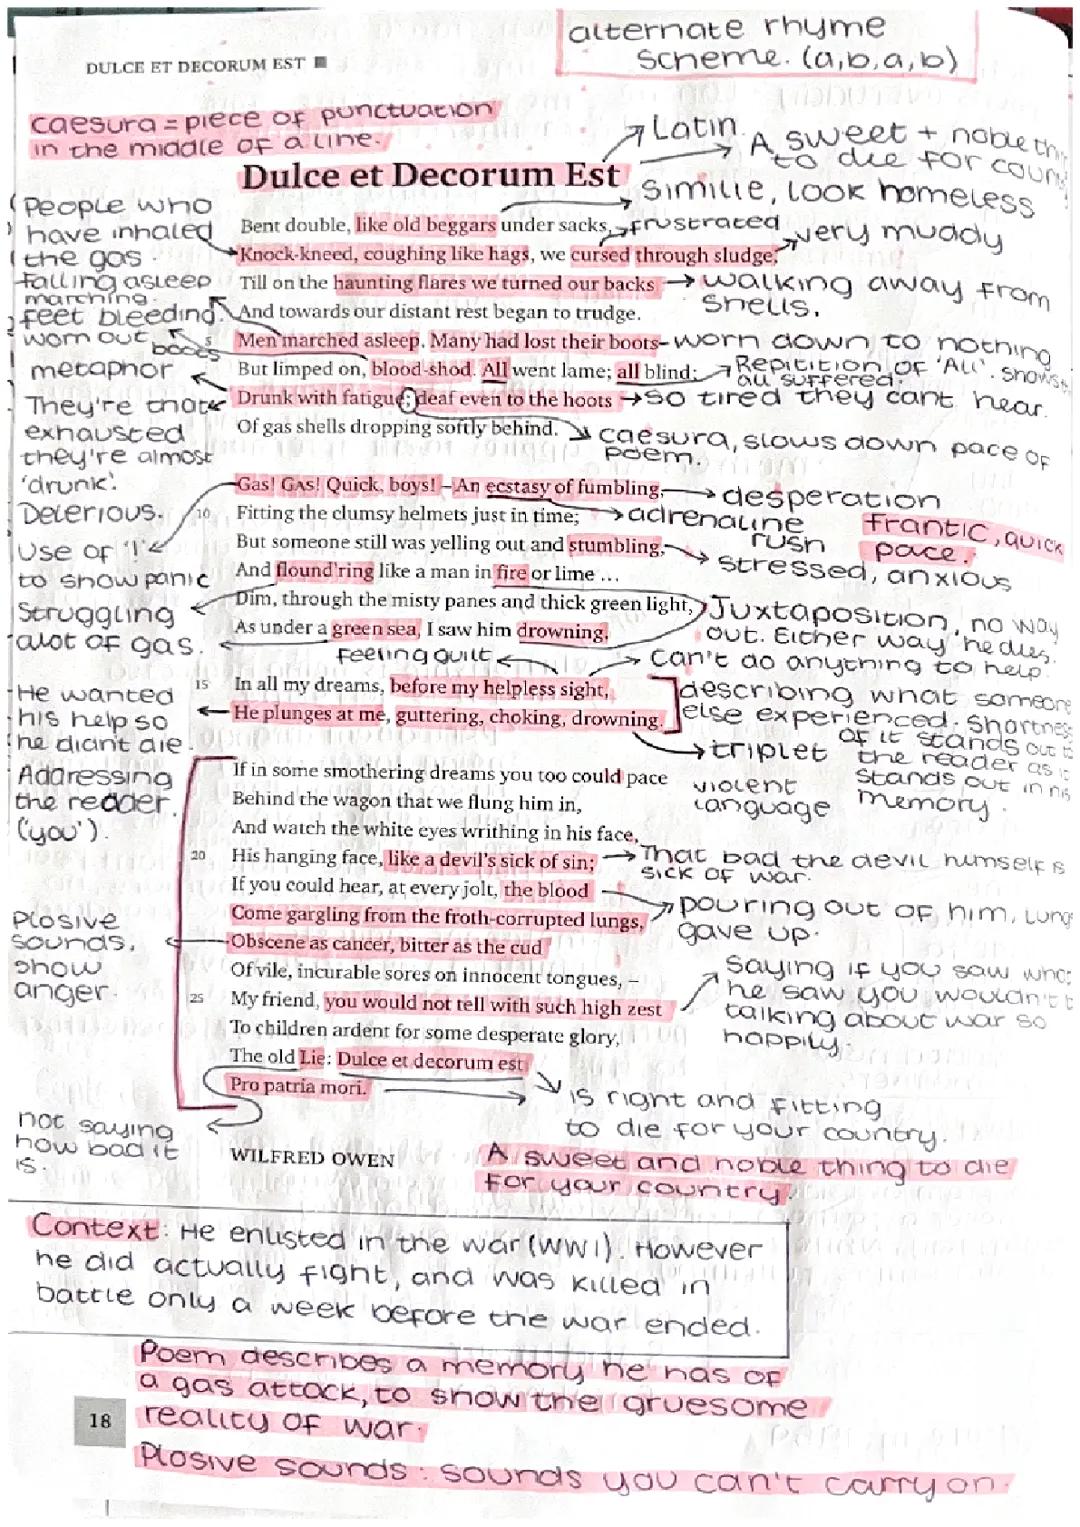 alternate rhyme
scheme. (a,b,a,b)
DULCE ET DECORUM EST
caesura = piece of punctuation
in the middle of a line.
Latin.
A sweet + noble
to die for
Dulce et Decorum Est
Similie, look homeless
People who
have inhaled
the gas
Bent double, like old beggars under sacks,
frustrated
very muddy
Knock-kneed, coughing like hags, we cursed through sludge,
falling asleep
marching.
Till on the haunting flares we turned our backs
walking away from
shells.
feet bleeding.
And towards our distant rest began to trudge.
worn out
boots
5
Men marched asleep. Many had lost their boots
worn down to nothing
metaphor
But limped on, blood-shod. All went lame; all blind;
Repitition of 'All'. shows
all suffered.
They're that
exhausted
they're almost
'drunk'.
Drunk with fatigue; deaf even to the hoots
so tired they cant hear.
Of gas shells dropping softly behind.
caesura, slows down pace of
poem.
Gas! GAS! Quick, boys! – An ecstasy of fumbling,
desperation
Delerious.
10
Fitting the clumsy helmets just in time;
adrenaline
rush
frantic, quick
pace.
Use of '!'
to show panic
But someone still was yelling out and stumbling,
stressed, anxious
And flound'ring like a man in fire or lime ...
Struggling
Dim, through the misty panes and thick green light,
Juxtaposition, no way
out. Either way he dies.
alot of gas.
As under a green sea, I saw him drowning.
feeling guilt
can't do anything to help.
15
In all my dreams, before my helpless sight,
describing what someone
else experienced. Shortness
of it stands out to
the reader as it
stands out in his
memory.
He wanted
his help so
he didnt die.
He plunges at me, guttering, choking, drowning.
triplet
violent
language
Addressing
the reader.
('you').
If in some smothering dreams you too could pace
Behind the wagon that we flung him in,
And watch the white eyes writhing in his face,
20
His hanging face, like a devil's sick of sin;
That bad the devil humself is
sick of war.
If you could hear, at every jolt, the blood
pouring out of him, lungs
gave up.
Plosive
sounds,
show
anger.
Come gargling from the froth-corrupted lungs,
Obscene as cancer, bitter as the cud
Of vile, incurable sores on innocent tongues, –
Saying if you saw what
he saw you wouldn't b
talking about war so
happily.
25
My friend, you would not tell with such high zest
To children ardent for some desperate glory,
The old Lie: Dulce et decorum est
Pro patria mori.
is right and fitting
to die for your country.
not saying
how bad it
is.
WILFRED OWEN
A sweet and noble thing to die
for your country.
Context: He enlisted in the war (WW1). However
he did actually fight, and was killed in
battle only a week before the war ended.
Poem describes a memory he has of
a gas attack, to show the gruesome
reality of war.
18
Plosive sounds: sounds you can't carry on.